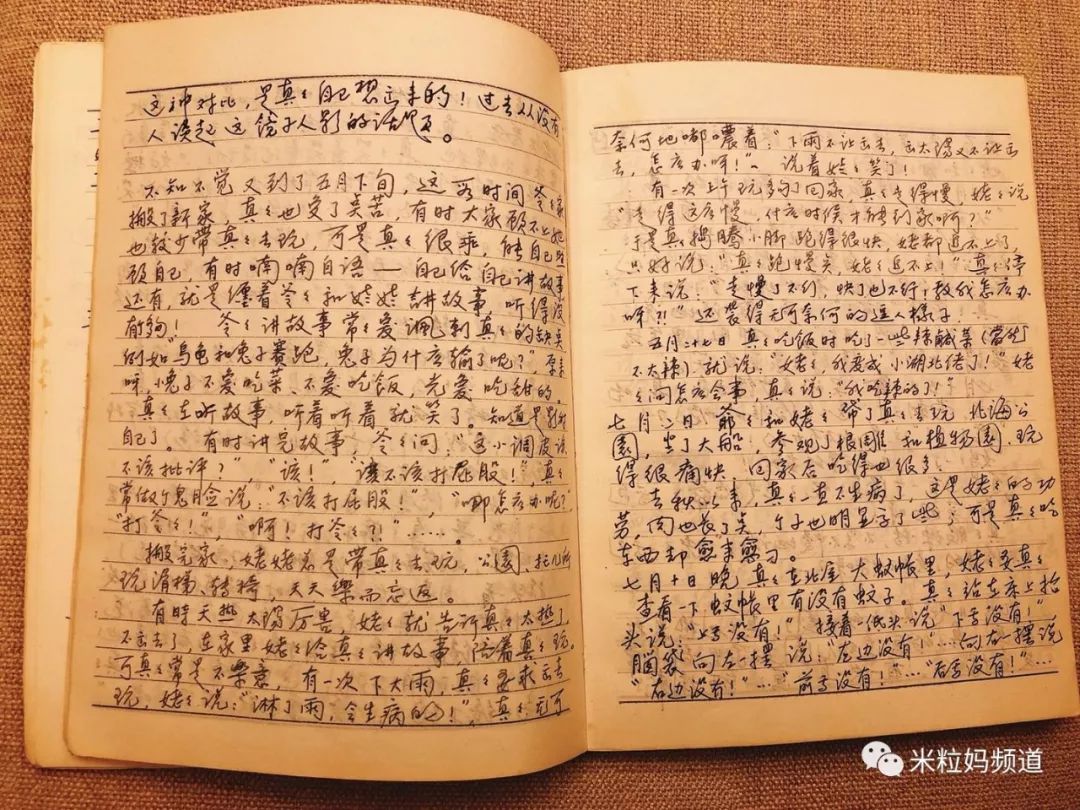 这种对比，是真々自己想出来的！过去从没有
人谈起这镜子人影的话呢。
不知不觉又到了五月下旬，这段时间爷々家
搬了新家，真々也受了点苦，有时大家顾不上她
也较少带真々去玩，可是真々很乖，能自己照
顾自己，有时喃喃自语——自己给自己讲故事
还有，就是缠着爷々和娃娃讲故事，听得没
有够！ 爷々讲故事常々爱讽刺真々的缺点
例如"乌龟和兔子赛跑，兔子为什么输了呢？"，原来
呀，小兔子不爱吃菜、不爱吃饭，光爱吃甜的。
真々在听故事，听着听着就笑了。知道是别
自己了。 有时讲完故事，爷々问："这小调皮该
不该批评？" "该！"，"该不该打屁股！"，真々
常做个鬼脸说："不该打屁股！"，"哪怎么办呢？"
"打爷々！"，"啊！打爷々?!"……。
搬完家，姥姥总是带真々去玩，公园、托儿所
玩滑梯、转椅，天天乐而忘返。
有时天热太阳厉害，姥々就告诉真々太热了
不出去了，在家里姥々给真々讲故事，陪着真々玩。
可真々常是不乐意，有一次下大雨，真々要求出去
玩，姥々说："淋了雨，会生病的！"，真々无可
奈何地嘟囔着："下雨不让出去，出太阳又不让出
去，怎么办呀！"、说着姥々笑了！
有一次上午玩多了回家，真々走得慢，姥々说
"走得这么慢，什么时侯才能到家啊？"
于是真々捣腾小脚跑得很快，姥都追不上了，
只好说："真々跑慢点，姥々追不上！"真々停
下来说："走慢了不行，快了也不行；教我怎么办
呀?!" 还装得无可奈何的逗人样子！
五月二十七日真々吃饭时吃了一些辣咸菜（当然
不太辣）就说："姥々，我变成小湖北佬了！"姥
々问怎么会事，真々说："我吃辣的了！"
七月二日爷々和姥々带了真々去玩北海公
园，坐了大船，参观了根雕和植物园，玩
得很痛快，回家后吃得也很多。
去秋以来，真々一直不生病了，这是姥々的功
劳，肉也长了点，个子也明显了些；可是真々吃
东西却愈来愈刁。
七月十日晚真々在北屋大蚊帐里，姥々要真々
查看一下蚊帐里有没有蚊子。真々站在床上抬
头说："上面没有！" 接着一低头说"下面没有！"
脑袋向左一摆说："左边没有！"…向右一摆说
"右边没有！"…"前面没有！"…"后面没有！"…
米粒妈频道